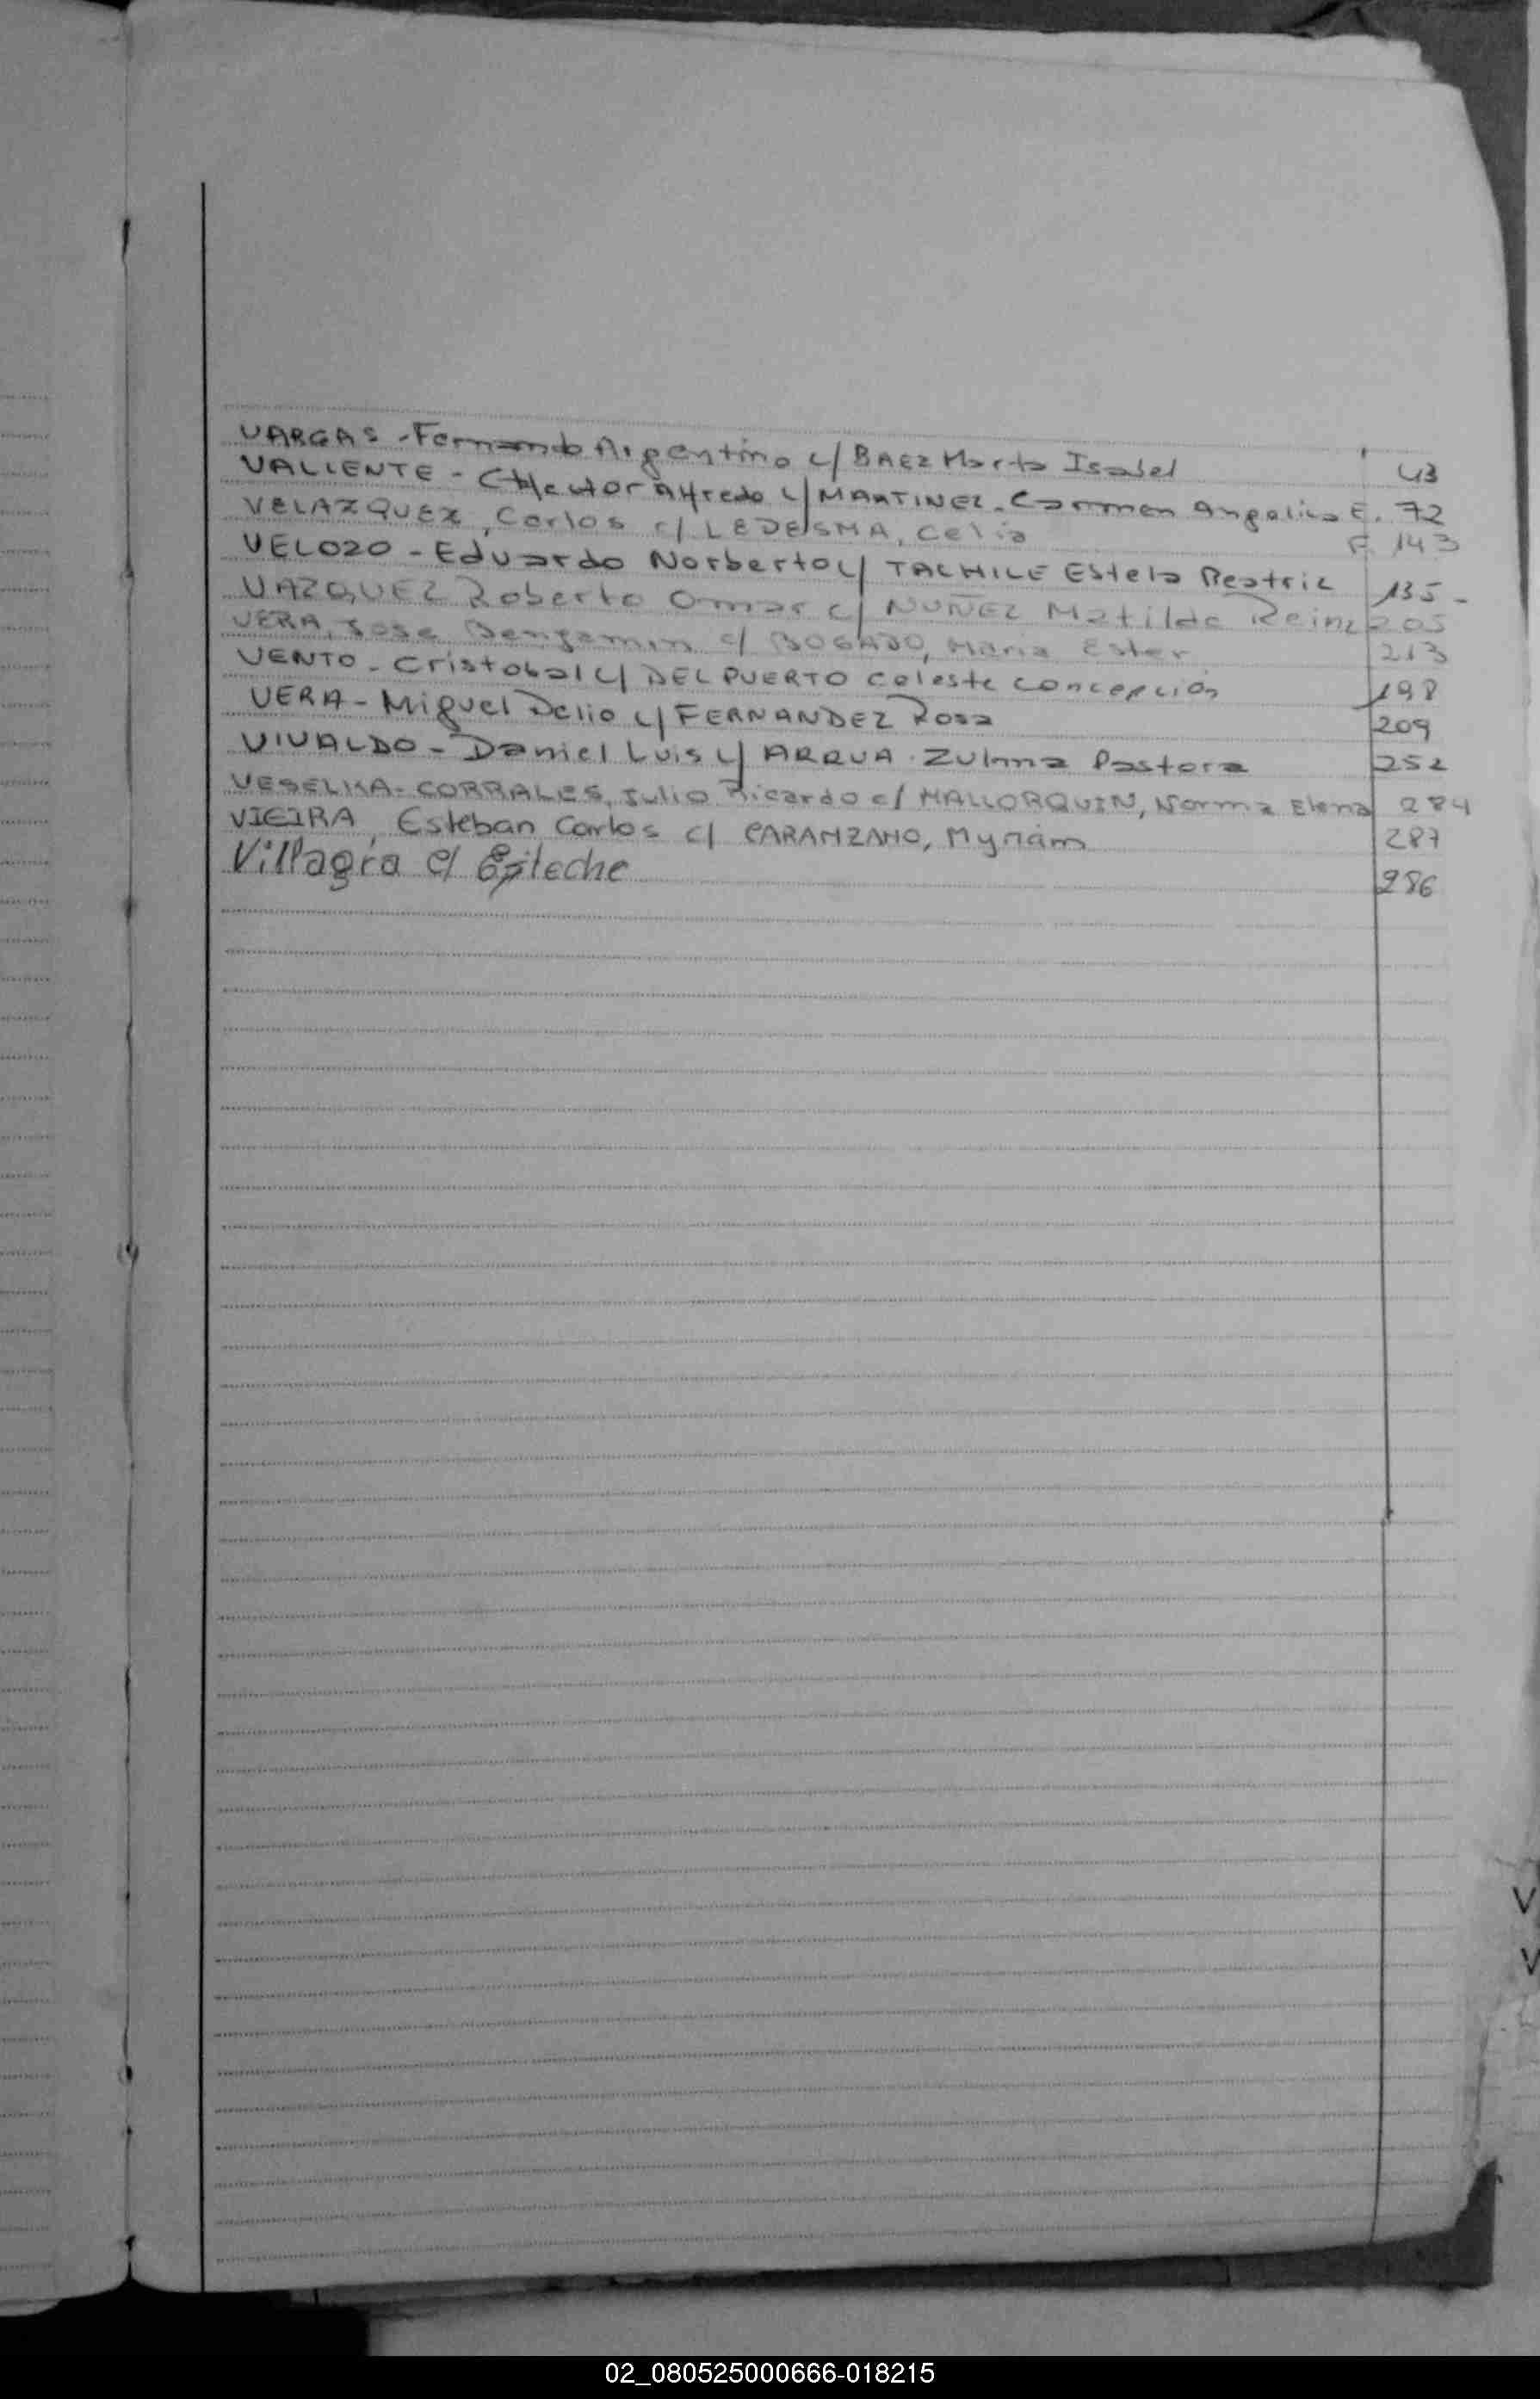 VARGAS - Fernando Argentino c/ BAEZ Marta Isabel 43
VALIENTE - Hector Alfredo c/ MARTINEZ - Carmen Angelica E. 72
VELAZQUEZ, Carlos c/ LEDESMA, Celia F. 143
VELOZO - Eduardo Norberto c/ TACHILE Estela Beatriz 135 -
VAZQUEZ Roberto Omar c/ NUÑEZ Matilde Reina 205
VERA, Jose Benjamin c/ BOGADO, Maria Ester 213
VENTO - Cristobal c/ DEL PUERTO Celeste Concepción 198
VERA - Miguel Delio c/ FERNANDEZ Rosa 209
VIVALDO - Daniel Luis c/ ARQUA - Zulma Pastora 252
VESELKA - CORRALES, Julio Ricardo c/ MALLORQUIN, Norma Elena 284
VIEIRA, Esteban Carlos c/ CARAMZANO, Myriam 287
Villagra c/ 286
V
V
02_080525000666-018215